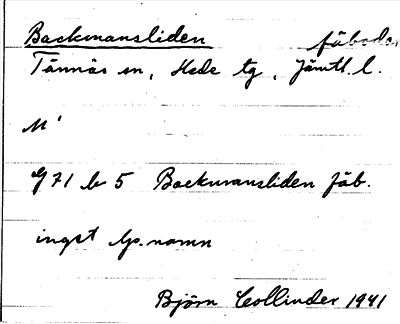 Backmansliden fäbodar
Tännäs sn, Hede tg, Jämtl. l.
M'
G 71 b 5 Backmansliden fäb.
inget bp. namn
Björn Collinder 1941